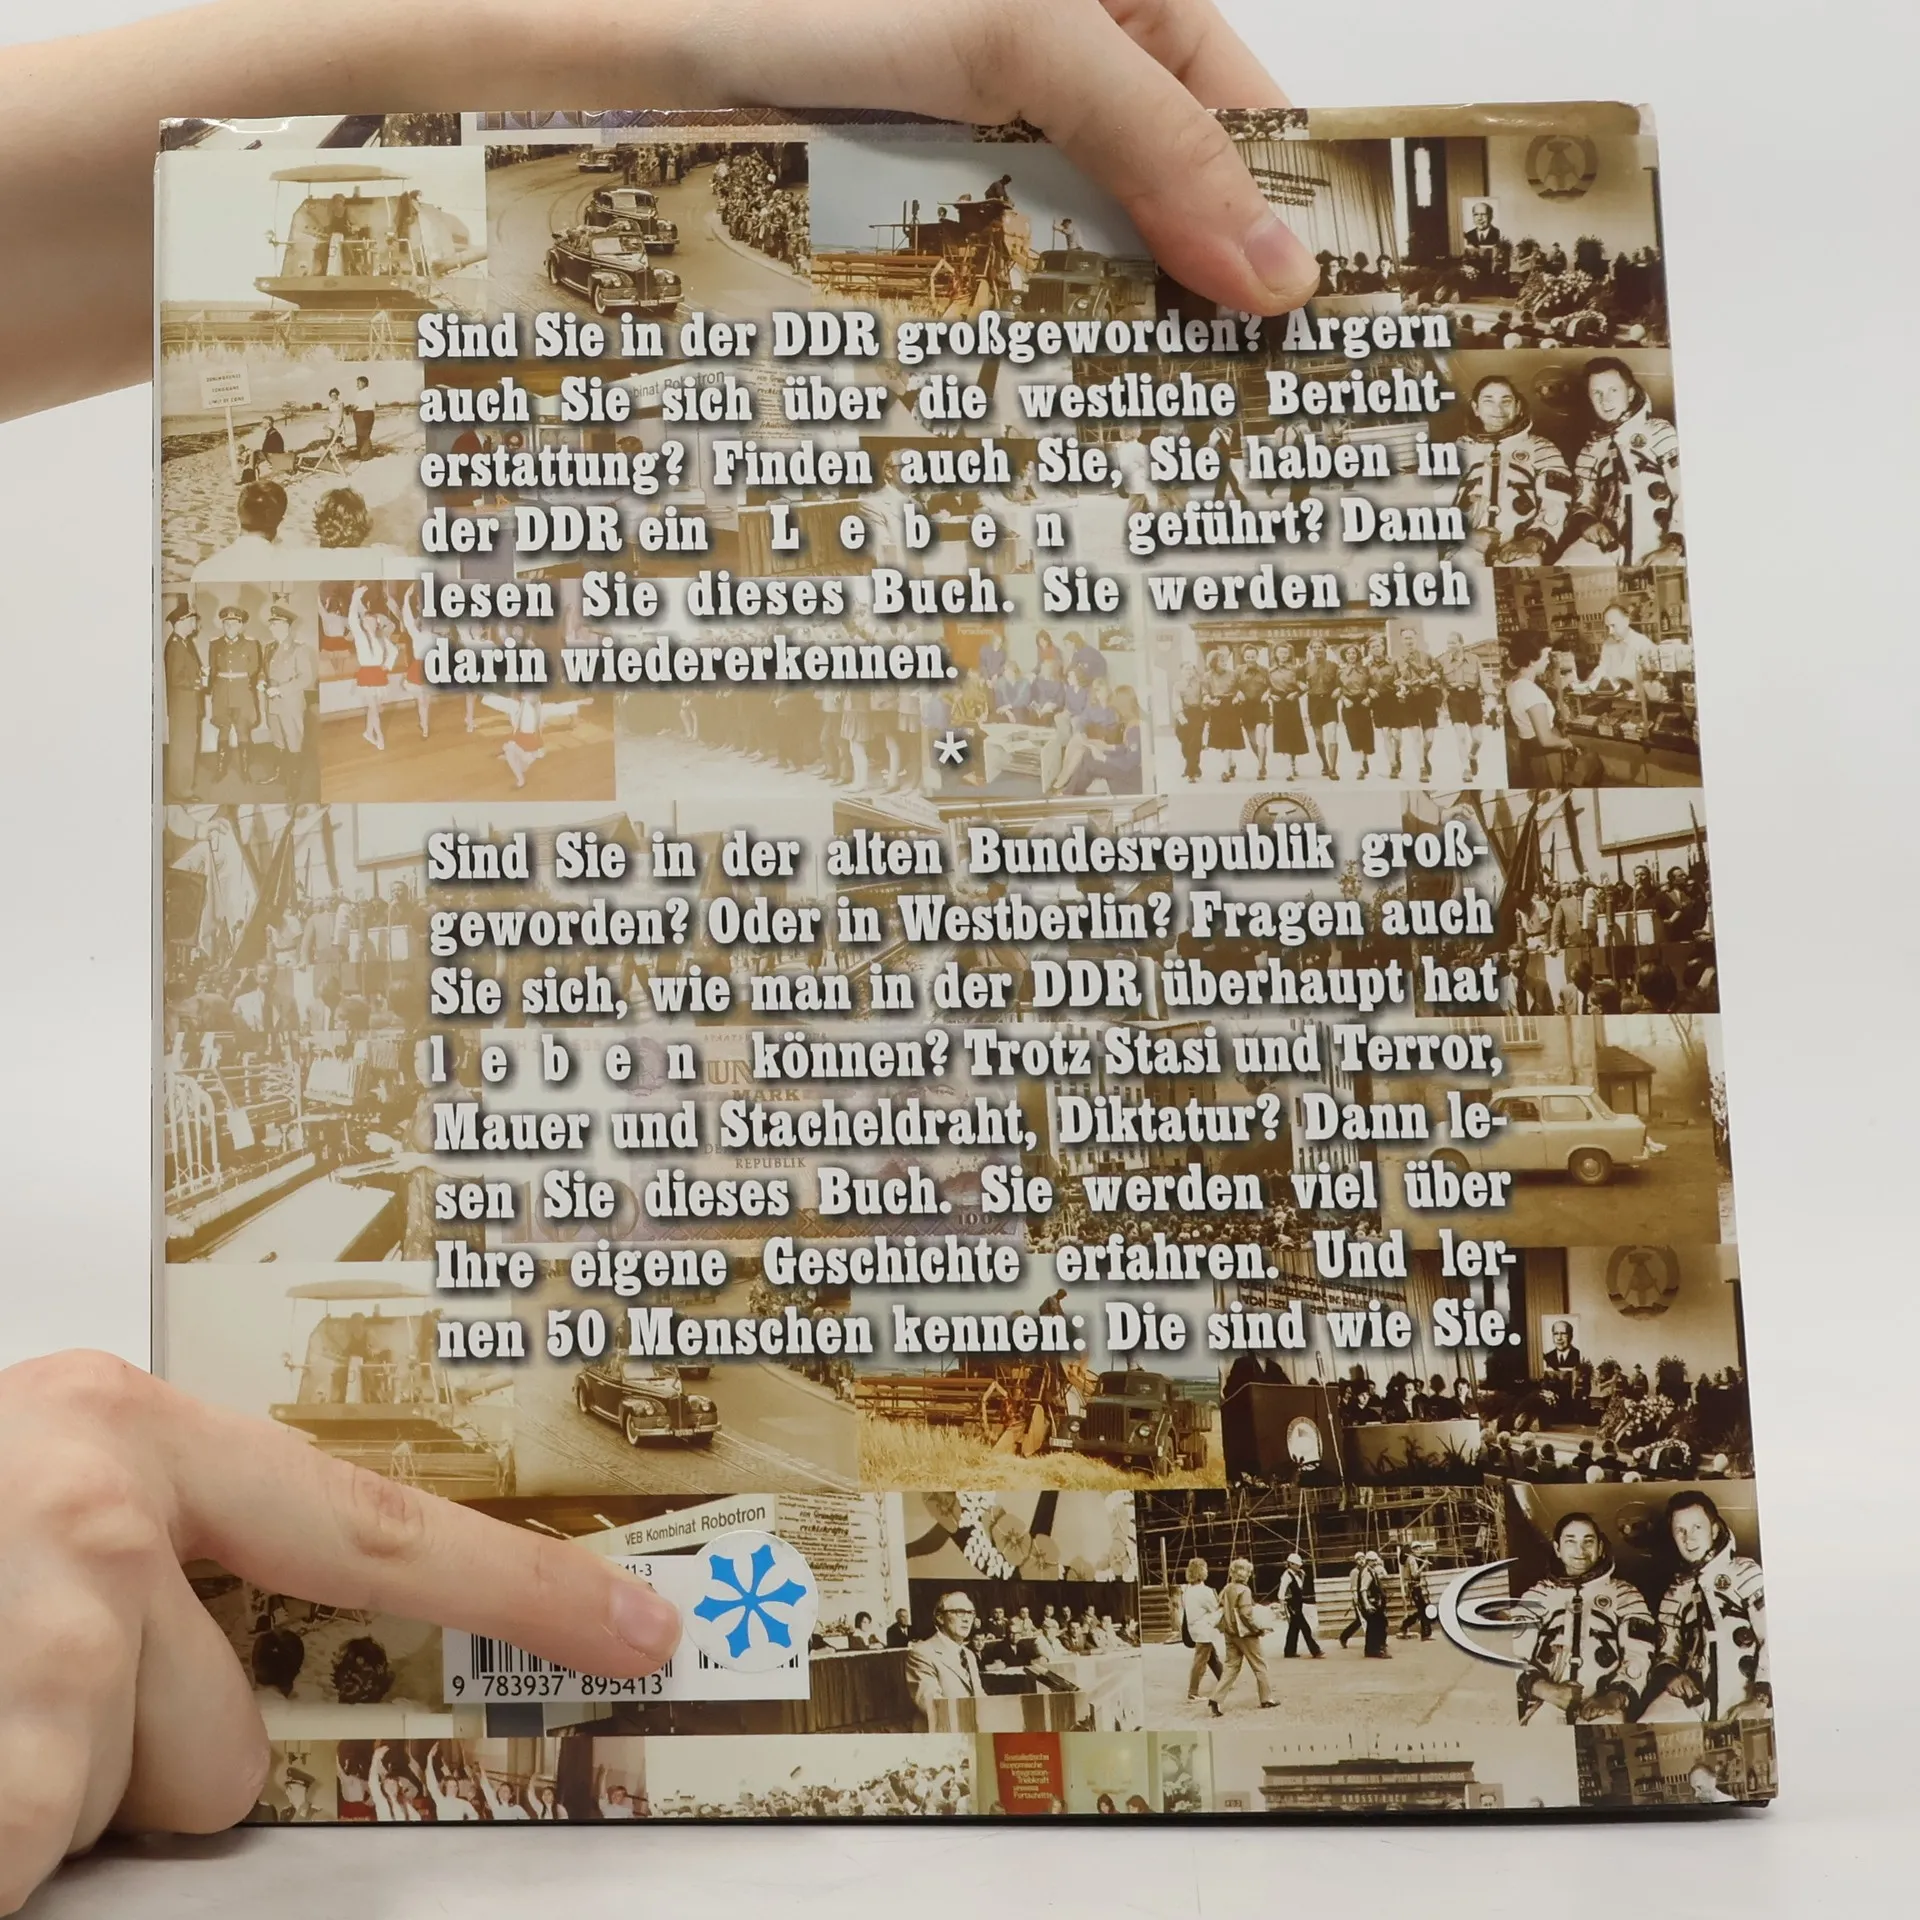 Sind Sie in der DDR großgeworden? Ärgern
auch Sie sich über die westliche Bericht-
erstattung? Finden auch Sie, Sie haben in
der DDR ein L e b e n geführt? Dann
lesen Sie dieses Buch. Sie werden sich
darin wiedererkennen.
*
Sind Sie in der alten Bundesrepublik groß-
geworden? Oder in Westberlin? Fragen auch
Sie sich, wie man in der DDR überhaupt hat
l e b e n können? Trotz Stasi und Terror,
Mauer und Stacheldraht, Diktatur? Dann le-
sen Sie dieses Buch. Sie werden viel über
Ihre eigene Geschichte erfahren. Und ler-
nen 50 Menschen kennen: Die sind wie Sie.
MARK
REPUBLIK
100
VEB Kombinat Robotron
11-3
9 783937 895413